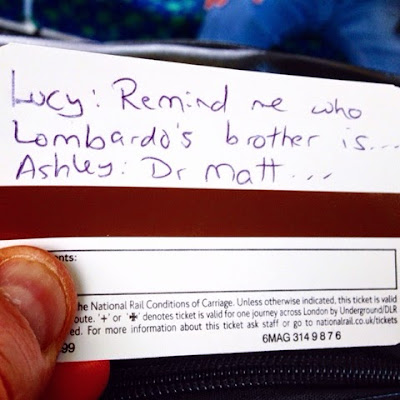 Lucy: Remind me who
Lombardo's brother is...
Ashley: Dr Matt...
nts:
the National Rail Conditions of Carriage. Unless otherwise indicated, this ticket is valid
oute. '+' or '✠' denotes ticket is valid for one journey across London by Underground/DLR
ed. For more information about this ticket ask staff or go to nationalrail.co.uk/tickets
99 6MAG 3149876